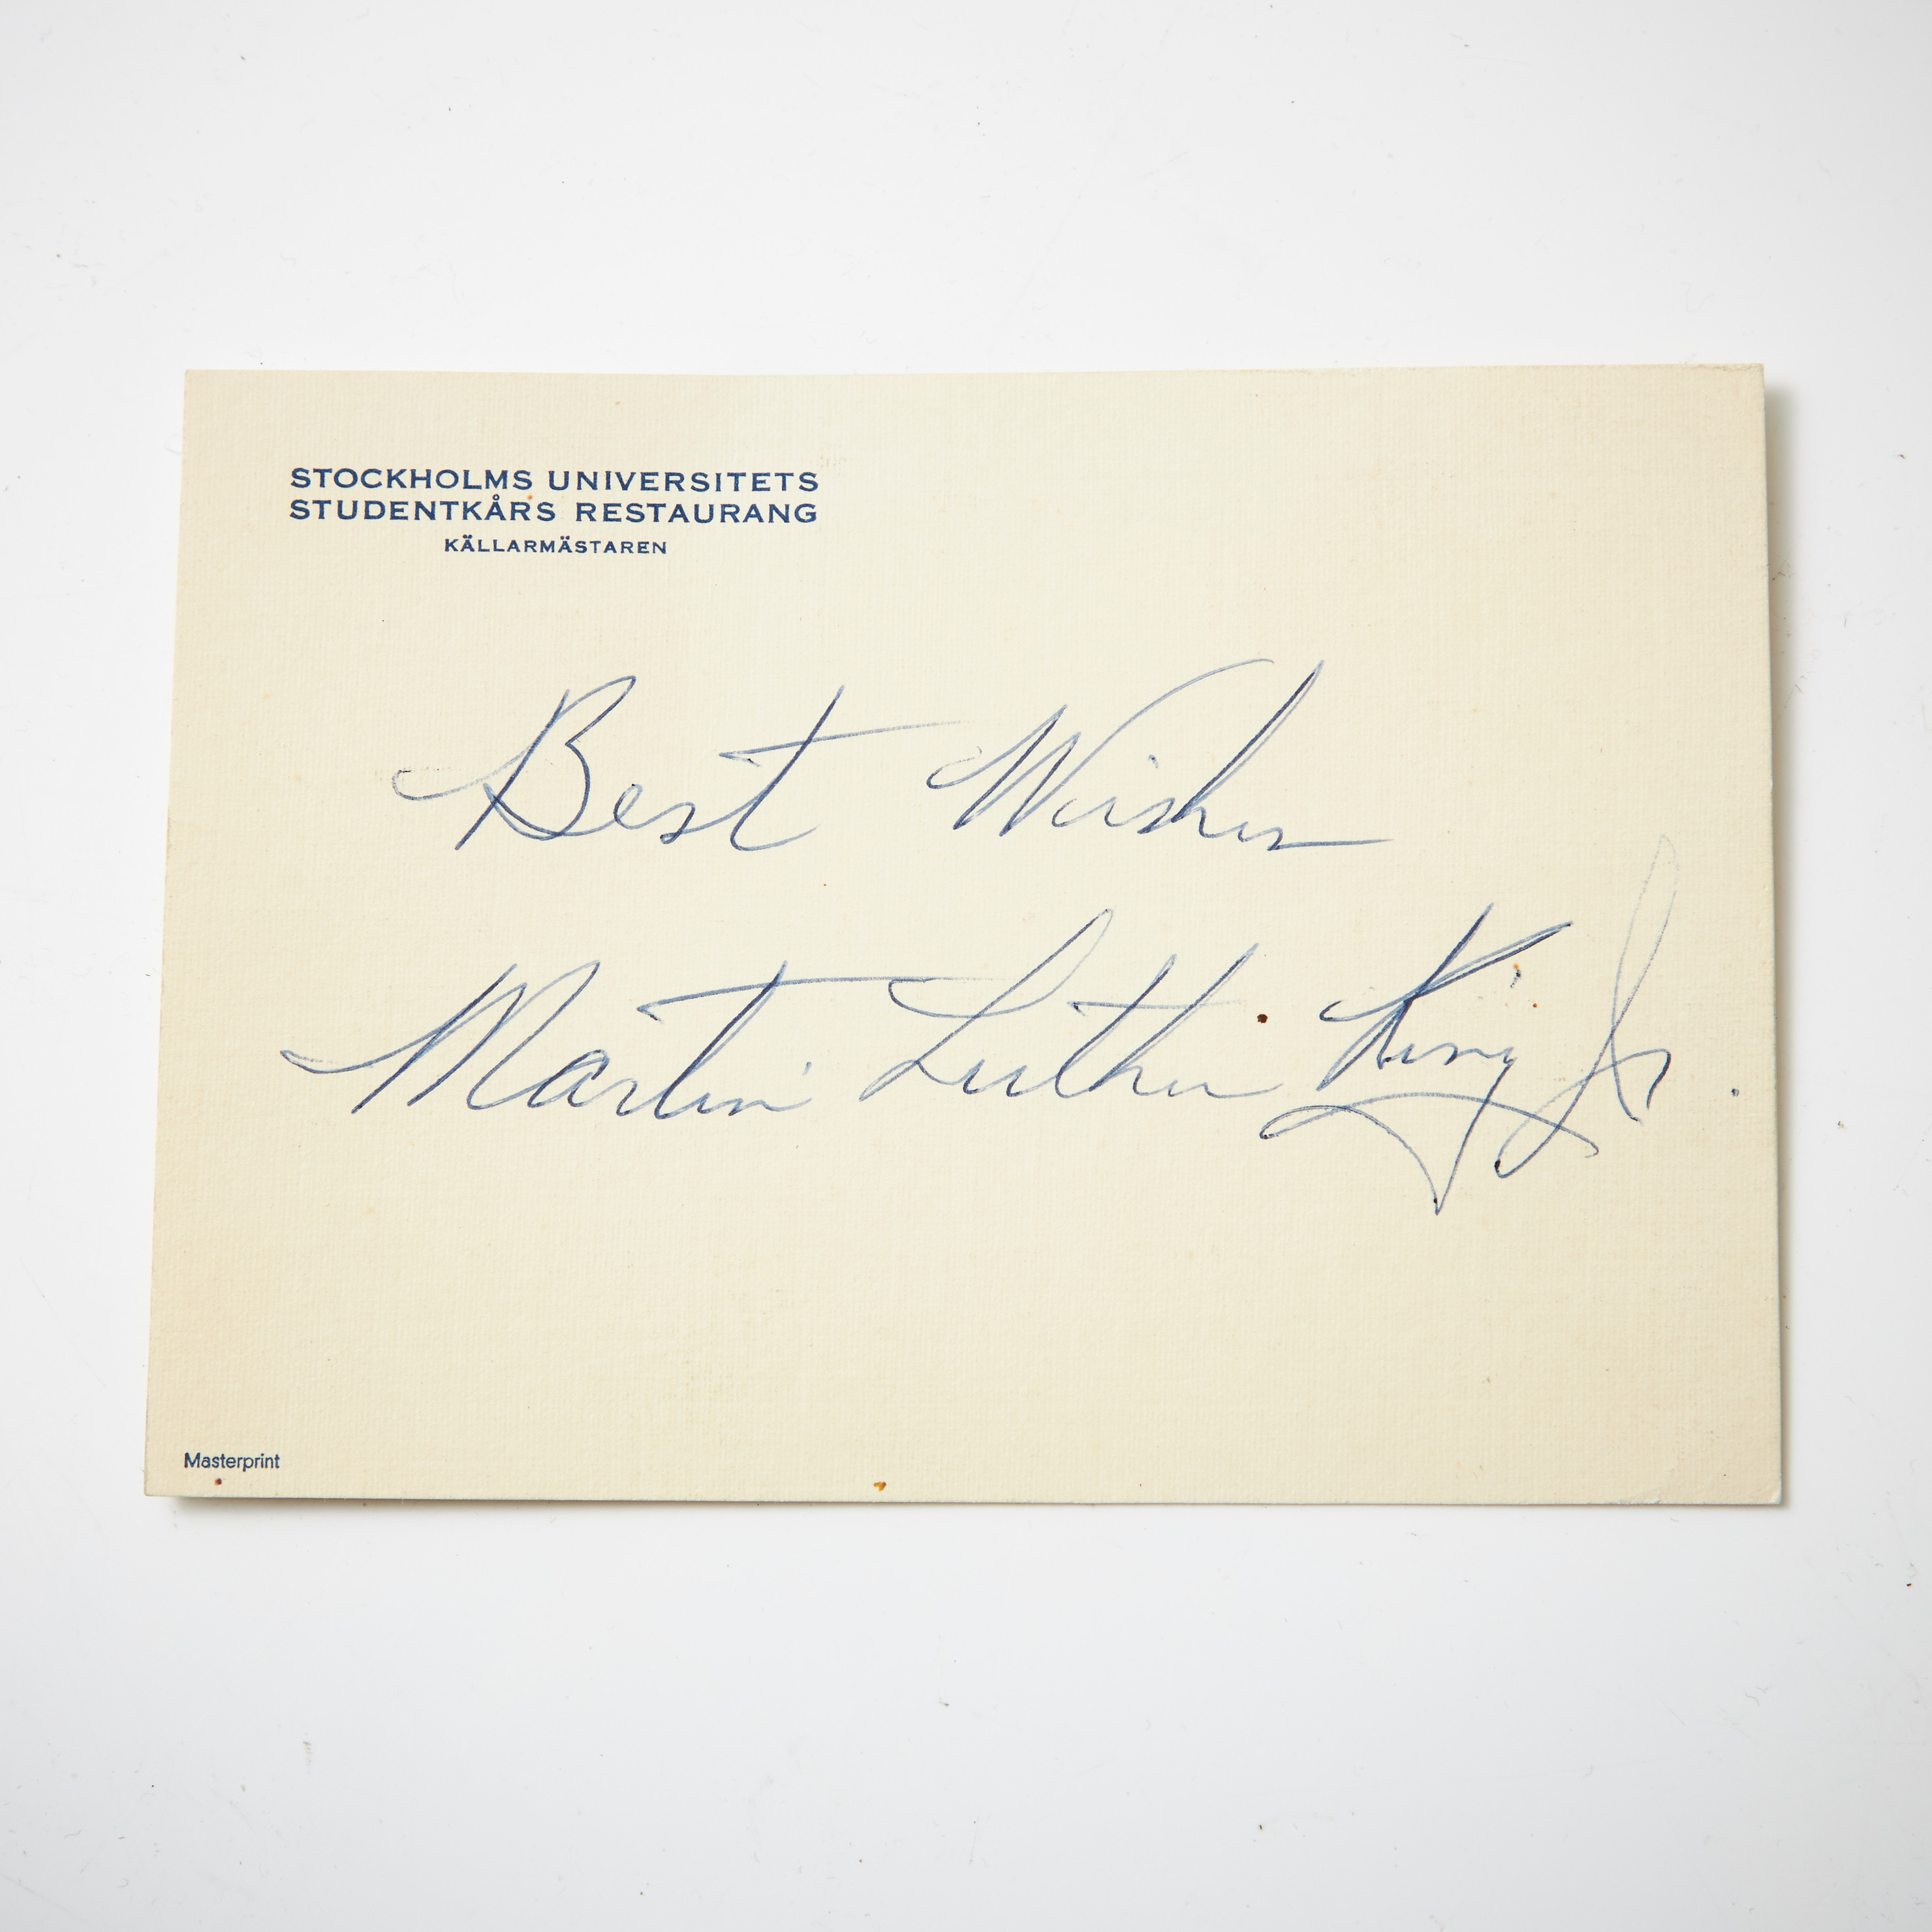 STOCKHOLMS UNIVERSITETS
STUDENTKÅRS RESTAURANG
KÄLLARMÄSTAREN
Best Wishes
Martin Luther King Jr.
Masterprint